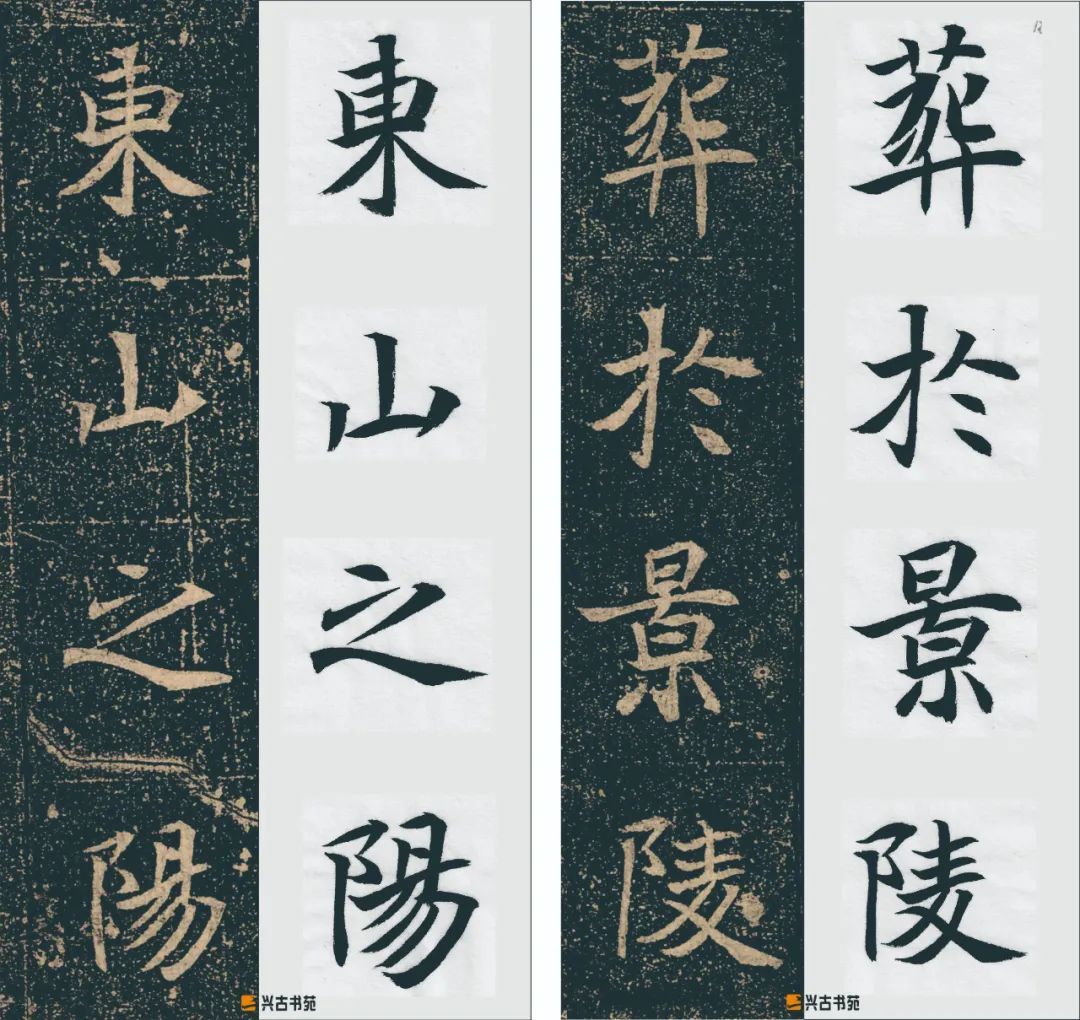 葬於景陵
葬於景陵
兴古书苑
東山之陽
東山之陽
兴古书苑